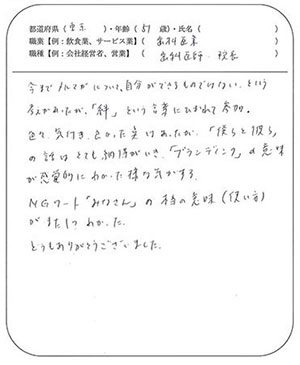 都道府県（東京）・年齢（57歳）・氏名（　　　）
職業【例：飲食業、サービス業】（歯科医業　　）
職種【例：会社経営者、営業】（歯科医師・院長　）
今までメルマガについて、自分ができるものではない、という
考えがあったが、「絆」という言葉にひかれて参加。
色々、気付き、良かった実はあったが、「僕らと彼ら」
の話はとても納得がいき、「ブランディング」の意味
が感覚的にわかった様な気がする。
NGワード「みなさん」の本当の意味（使い方）
がまた1つわかった。
どうもありがとうございました。